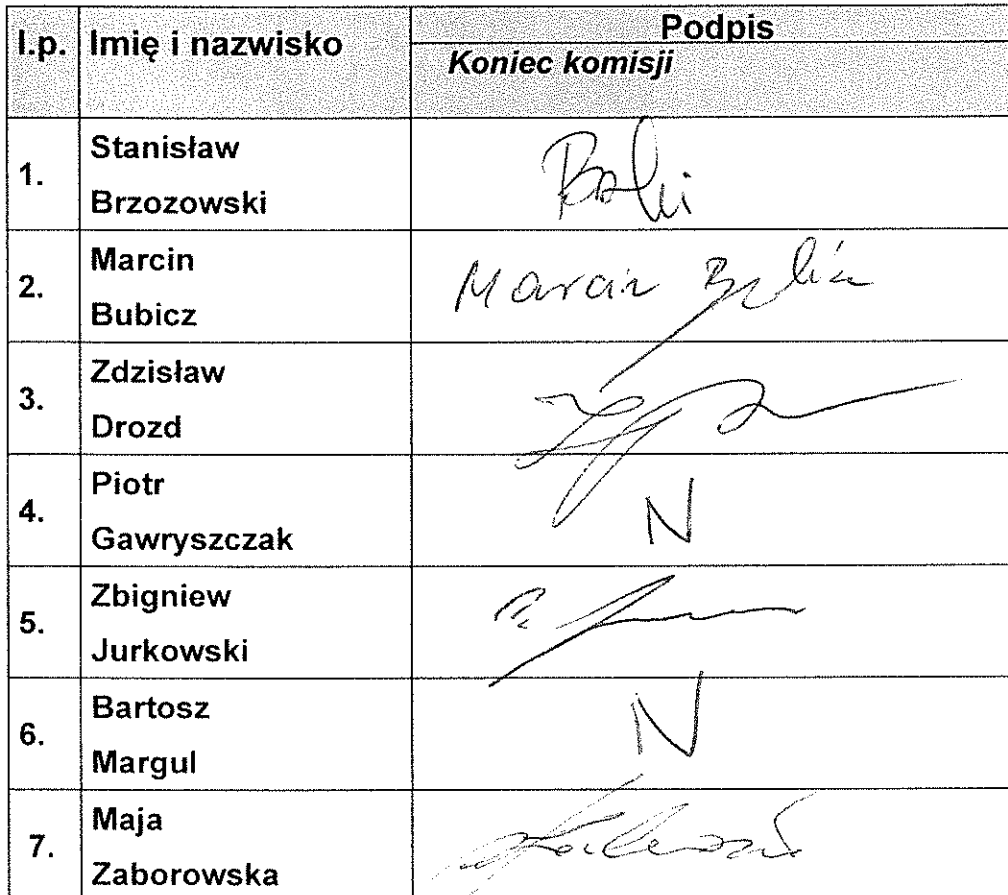 l.p. Imię i nazwisko Podpis
Koniec komisji
1. Stanisław
Brzozowski
2. Marcin
Bubicz
Marcin
3. Zdzisław
Drozd
4. Piotr
Gawryszczak
N
5. Zbigniew
Jurkowski
6. Bartosz
Margul
N
7. Maja
Zaborowska